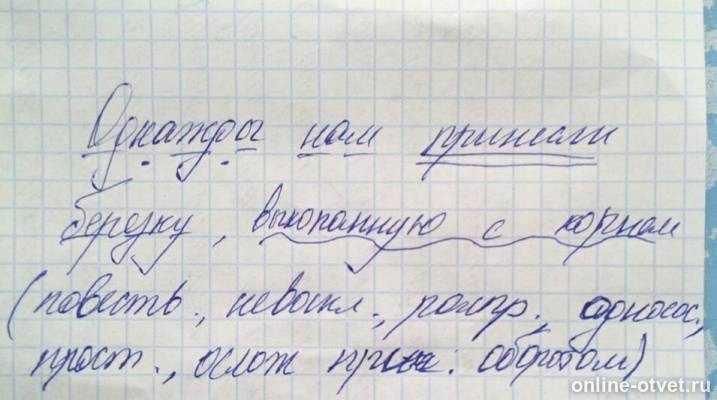 Однажды нам принесли
березку, выкопанную с корнем
(повест., невоскл., распр., односос.,
прост., ослож прич. оборотом)
online-otvet.ru